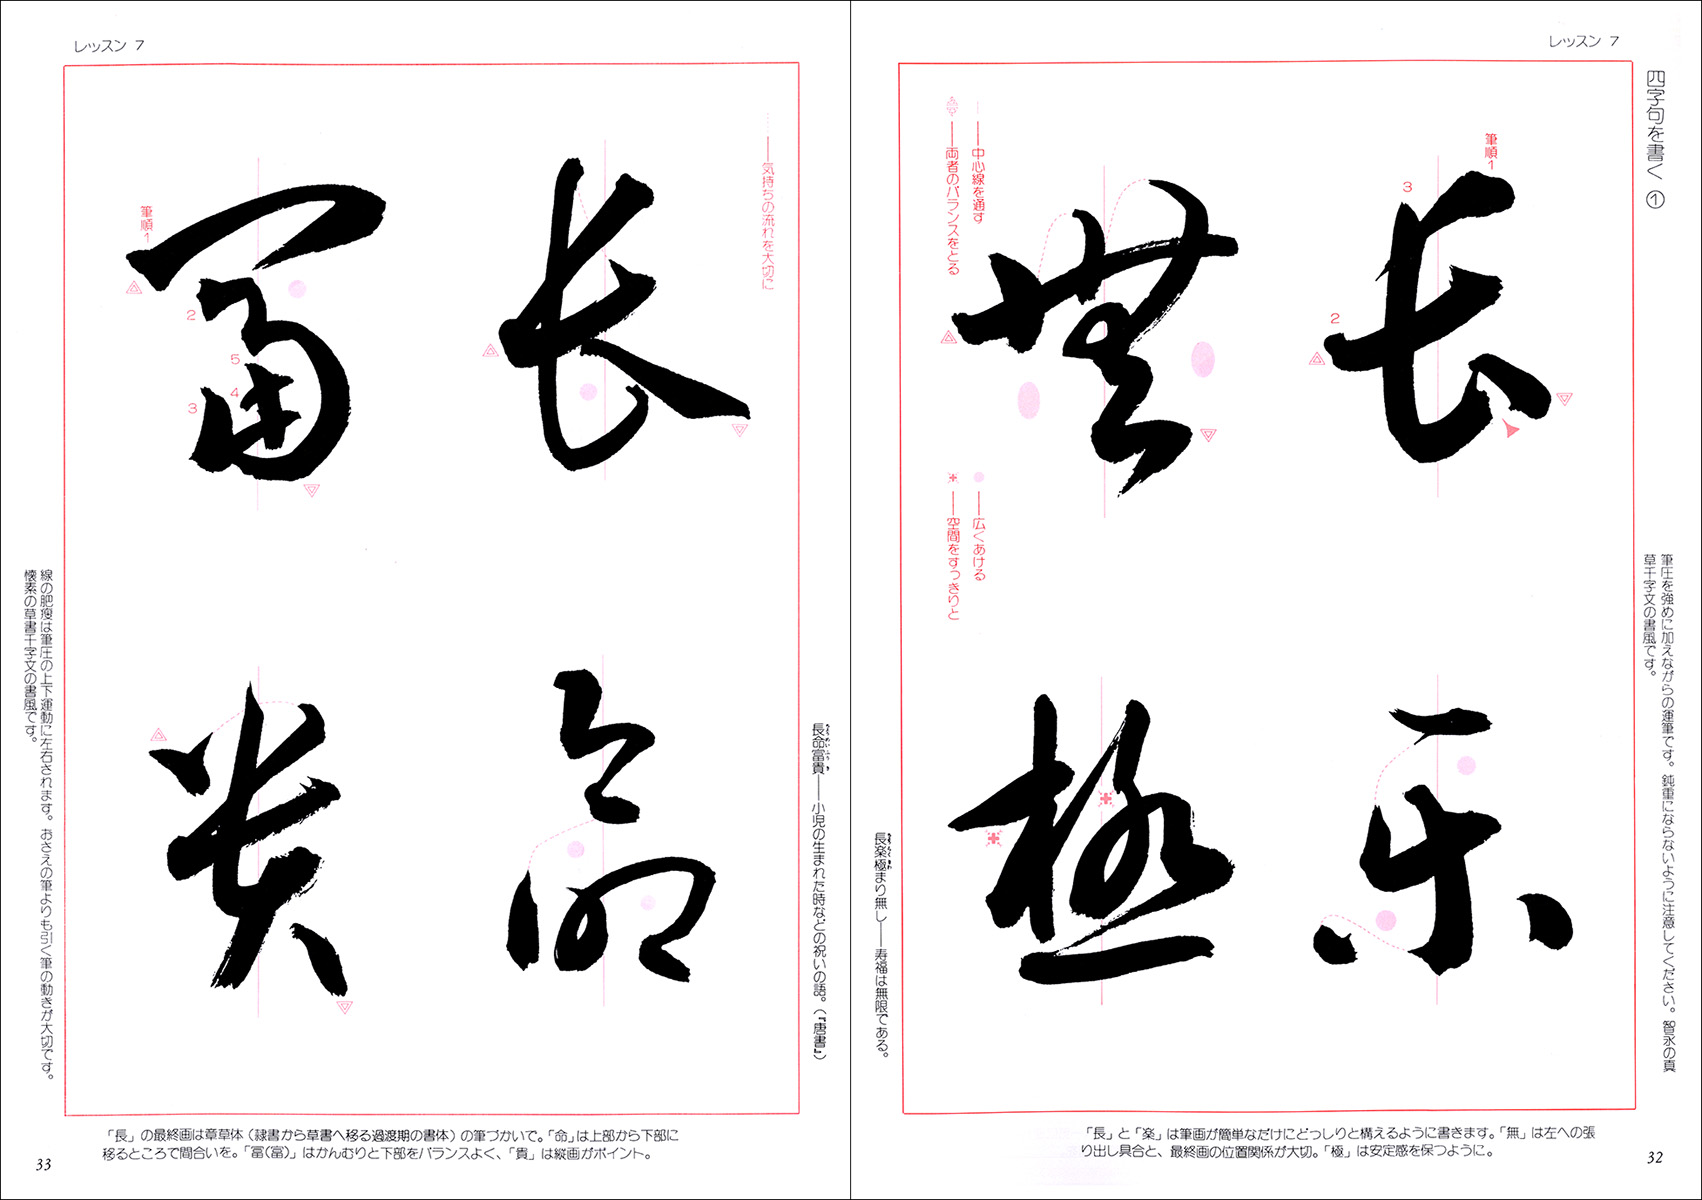 レッスン 7
四字句を書く ①
筆圧を強めに加えながらの運筆です。鈍重にならないように注意してください。智永の真
草千字文の書風です。
筆順1
2
3
長
楽
無
極
——中心線を通す
——両者のバランスをとる
——広くあける
——空間をすっきりと
長楽極まり無し——寿福は無限である。
「長」と「楽」は筆画が簡単なだけにどっしりと構えるように書きます。「無」は左への張
り出し具合と、最終画の位置関係が大切。「極」は安定感を保つように。
32
レッスン 7
長命富貴——小児の生まれた時などの祝いの語。(『唐書』)
……——気持ちの流れを大切に
長
命
筆順1
2
3
4
5
冨
貴
線の肥痩は筆圧の上下運動に左右されます。おさえの筆よりも引く筆の動きが大切です。
懐素の草書千字文の書風です。
「長」の最終画は章草体(隷書から草書へ移る過渡期の書体)の筆づかいで。「命」は上部から下部に
移るところで間合いを。「冨(富)」はかんむりと下部をバランスよく、「貴」は縦画がポイント。
33